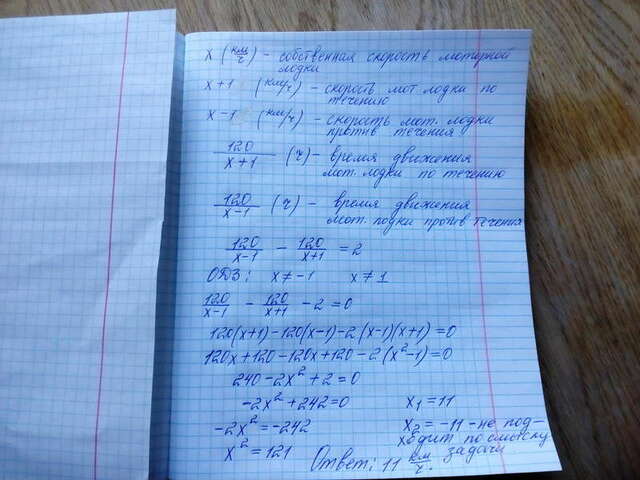 x (км/ч) - собственная скорость моторной
лодки
x+1 (км/ч) - скорость мот лодки по
течению
x-1 (км/ч) - скорость мот. лодки
против течения
120/(x+1) (ч) - время движения
мот. лодки по течению
120/(x-1) (ч) - время движения
мот. лодки против течения
120/(x-1) - 120/(x+1) = 2
ОДЗ: x ≠ -1 x ≠ 1
120/(x-1) - 120/(x+1) - 2 = 0
120(x+1) - 120(x-1) - 2(x-1)(x+1) = 0
120x + 120 - 120x + 120 - 2(x² - 1) = 0
240 - 2x² + 2 = 0
-2x² + 242 = 0 x₁ = 11
-2x² = -242 x₂ = -11 - не под-
x² = 121 ходит по смыслу
задачи
Ответ: 11 км/ч.